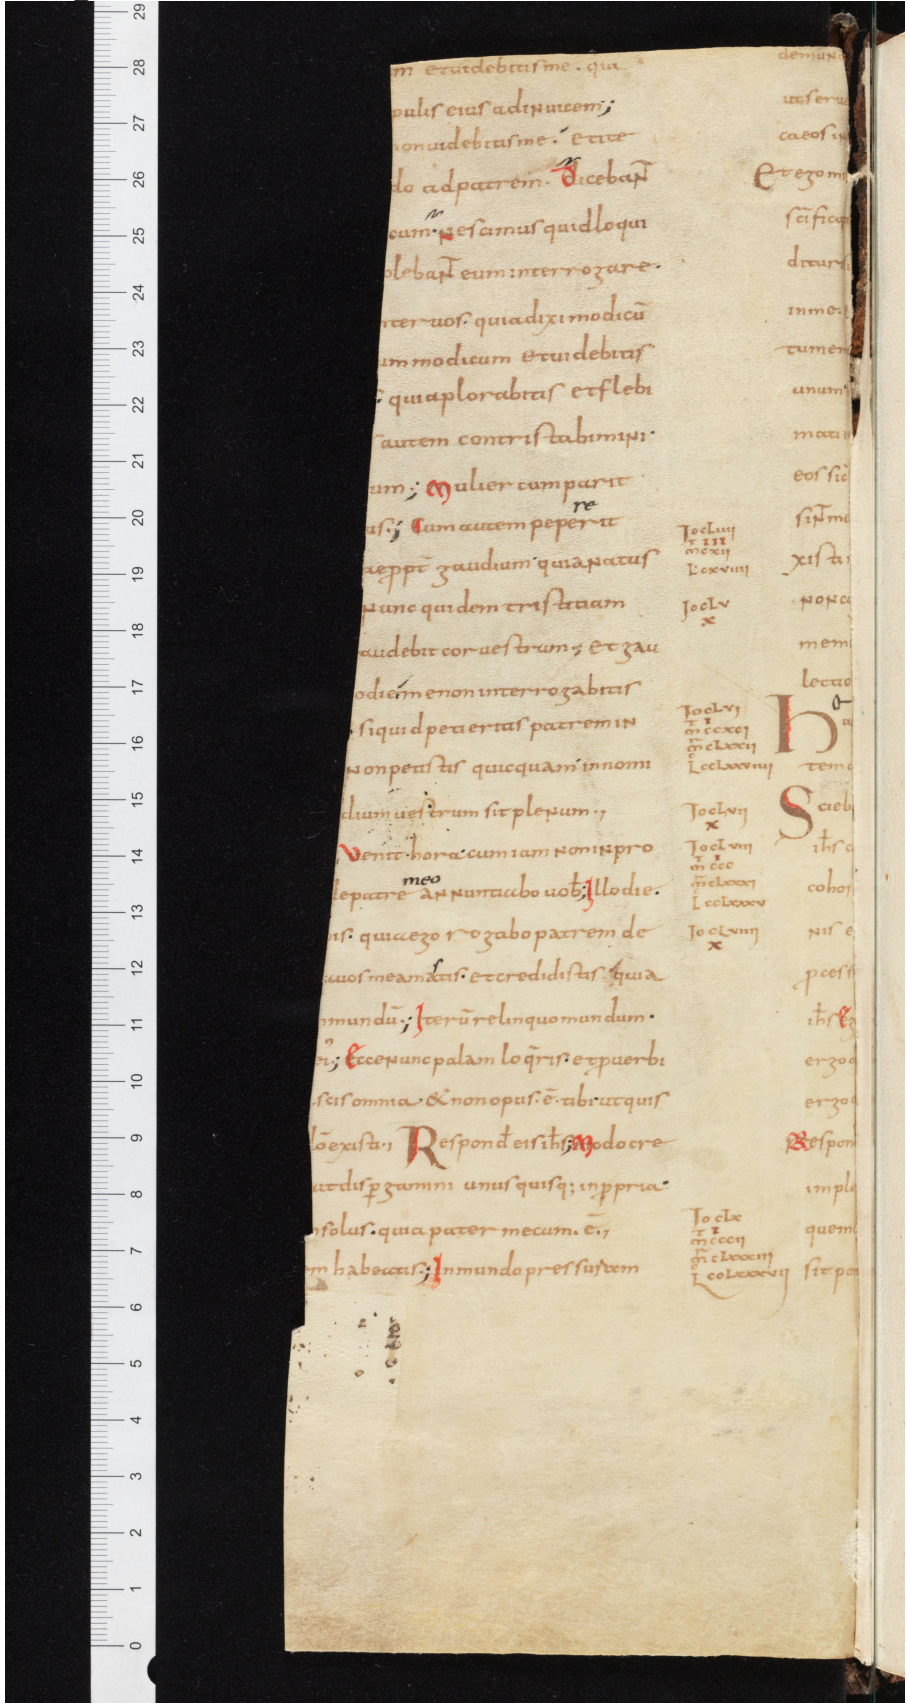 m et uidebitis me. quia
pulis eius adinuicem;
non uidebitis me. et ite
do ad patrem. dicebanT̄
cum. nescimus quid loqui
olebanT̄ eum interrogare.
nter uos. quia dixi modicū
um modicum et uidebitis
quia plorabitis et flebi
s autem contristabimini.
um; Mulier cum parit
re
us; Cum autem pepererit
ae ꝓpt̄ gaudium quia natus
Nunc quidem tristitiam
audebit cor uestrum; et gau
o die me non interrogabitis
siquid petieritis patrem in
Non petistis quicquam in nomi
dium uestrum sit plenum.,
Venit hora cum iam non in pro
meo
de patre annuntiabo uoƀ; Illo die.
is. quia ego rogabo patrem de
uos me amatis. et credidistis quia
mundū; Iterū relinquo mundum.
ei; Ecce nunc palam loq̄ris. et ꝓuerbi
scis omnia. & non opus. ē. tibi ut quis
dō existi., Respond̄ eis ih̄s; Modo cre
ut disꝑgamini unusquisq; in ꝓpria.
solus. quia pater mecum. ē.,
m habeatis; In mundo pressuram
Io cLiiii
T III
m̄ cxii
L cxviiii
Io cLv
x
Io cLvi
T I
m̄ ccxci
m̄ cLxxii
L ccLxxviiii
Io cLvii
x
Io cLviii
T I
m̄ ccc
m̄ cLxxxi
L ccLxxxv
Io cLviiii
x
Io cLx
T I
m̄ cccii
m̄ cLxxxiii
L ccLxxxvii
de mun
ut serue
ca eos in
Et ego
sc̄ifica
dicturi
in me.
tu me
unum
mati
eos sic
sinT̄ me
xisti
non co
mem
lectio
Ha
tem
Scieb
ih̄s
cohor
nis e
ꝓcess
ih̄s Eg
ergo
ergo
Respon
imple
quem
sit po